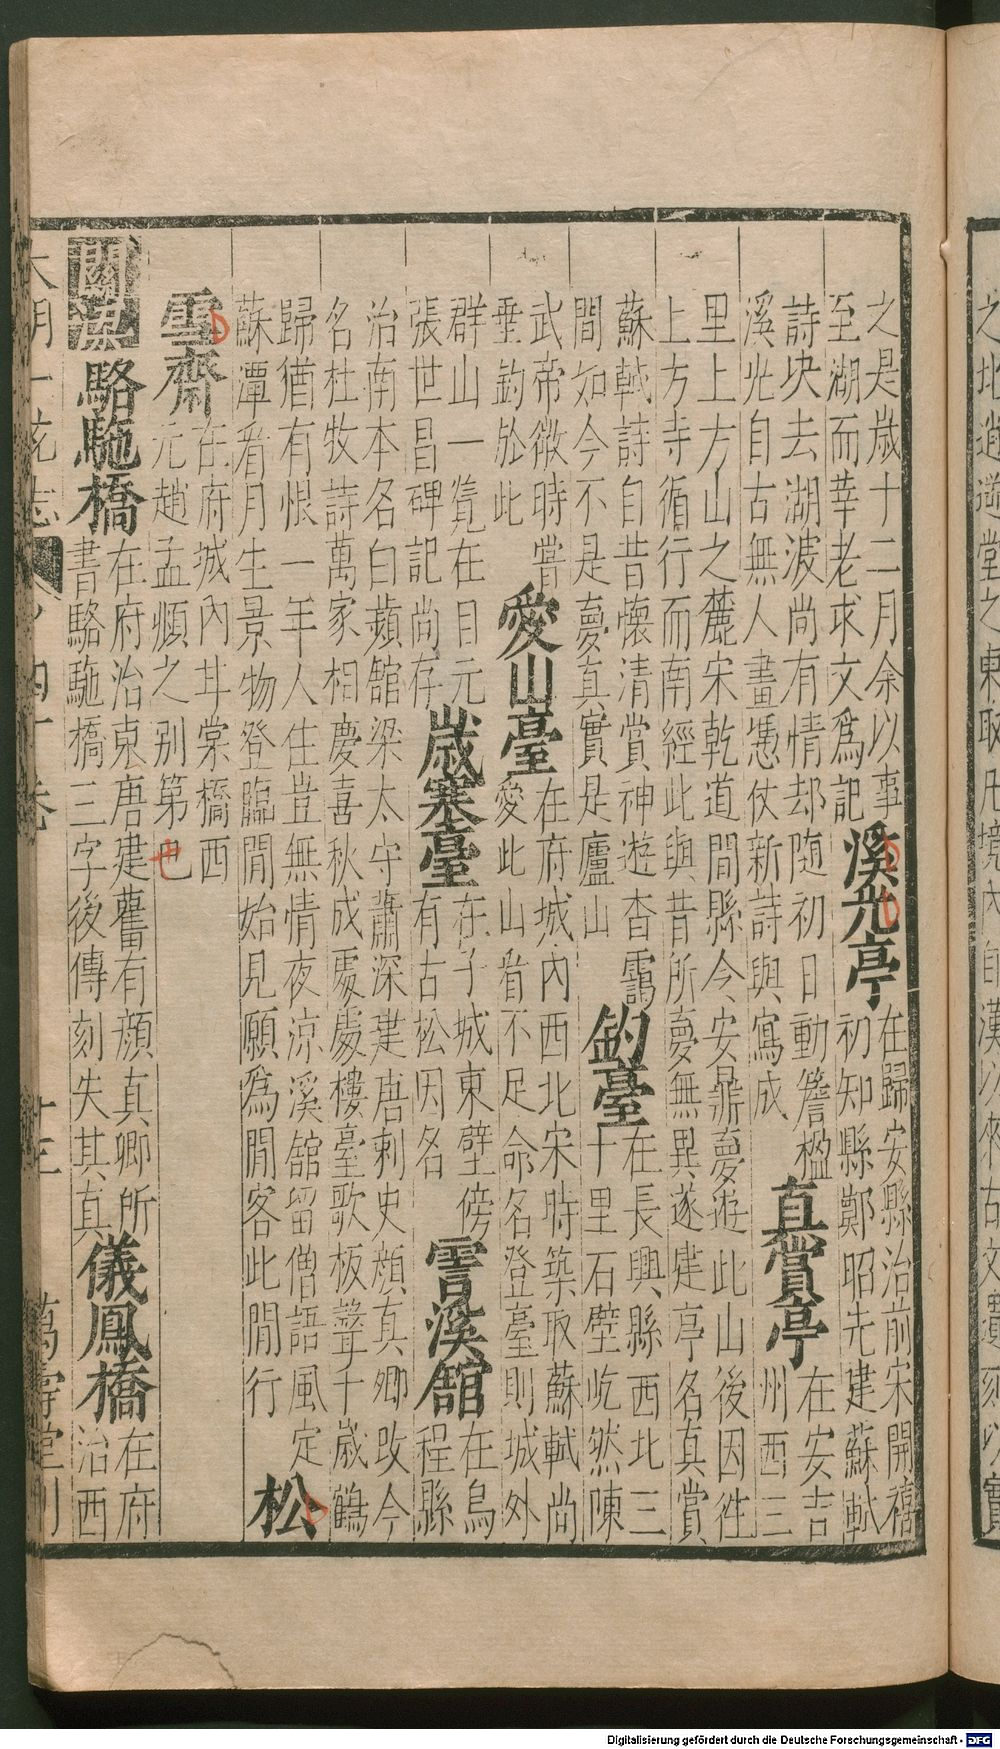 之北逍遥堂之東取凡境內自漢以來古文遺刻以實
之是歲十二月余以事
至湖而莘老求文為記
溪光亭
在歸安縣治前宋開禧
初知縣鄭昭先建蘇軾
詩块去湖波尚有情却随初日動簷楹
溪光自古無人畫憑仗新詩與寫成
真賞亭
在安吉
州西三
里上方山之麓宋乾道間縣令安鼎夢遊此山後因徃
上方寺循行而南經此與昔所夢無異遂建亭名真賞
蘇軾詩自昔懷清賞神遊杳靄
間如今不是夢真實是廬山
釣臺
在長興縣西北三
十里石壁屹然陳
武帝微時嘗
垂釣於此
愛山臺
在府城內西北宋時築取蘇軾尚
愛此山看不足命名登臺則城外
群山一覧在目元
張世昌碑記尚存
歲寒臺
在子城東壁傍
有古松因名
霅溪館
在烏
程縣
治南本名白蘋館梁太守蕭深建唐剌史顔真卿改今
名杜牧詩萬家相慶喜秋成處處樓臺歌板聲千歲鶴
歸猶有恨一年人住豈無情夜涼溪館留僧語風定
蘇潭看月生景物登臨閒始見願為閒客此閒行
松
雪齋
在府城內耳棠橋西
元趙孟頫之别第也
關梁
駱駞橋
在府治東唐建舊有顔真卿所
書駱駞橋三字後傳刻失其真
儀鳳橋
在府
治西
大明一統志
四十卷
十三
萬壽堂刊
Digitalisierung gefördert durch die Deutsche Forschungsgemeinschaft - DFG